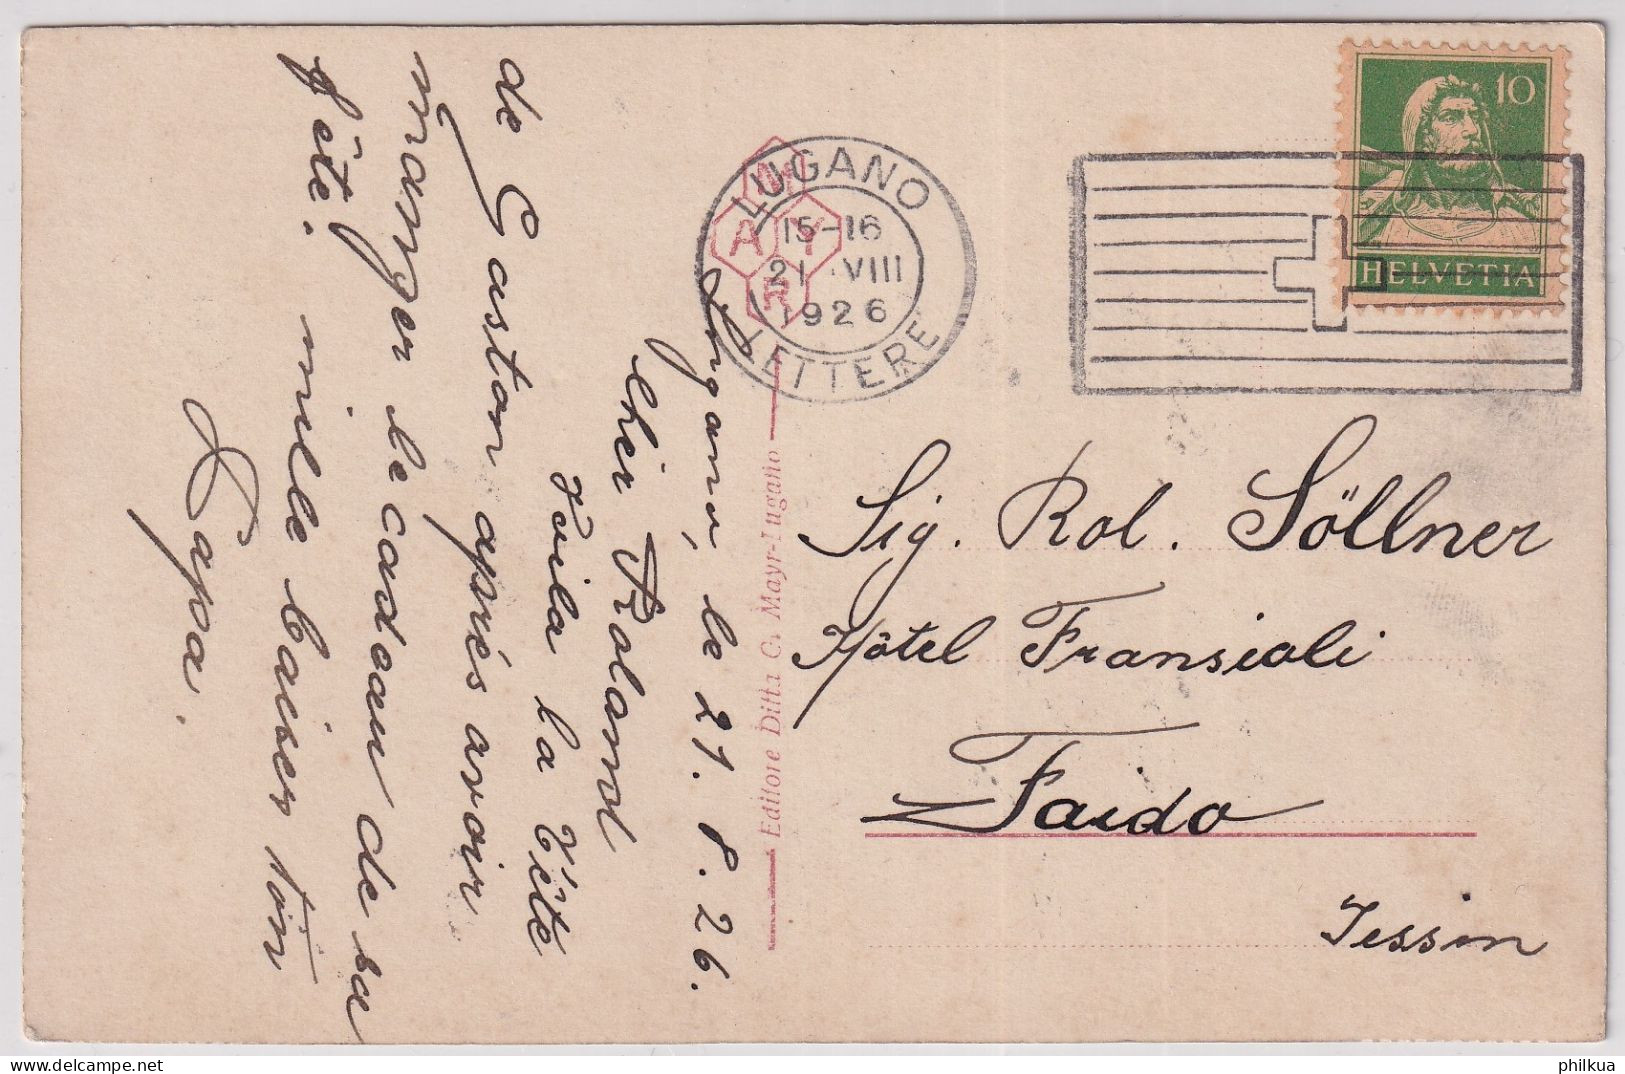 Lugano, le 21. 8. 26.
Cher Roland
Voila la tête
de Gaston après avoir
manger le cadeau de sa
fête. mille baiser ton
Papa.
LUGANO
15-16
21.VIII
1926
LETTERE
M
A Y
R
Editore Ditta C. Mayr-Lugano
10
HELVETIA
Sig. Rol. Söllner
Hôtel Fransioli
Faido
Tessin
philkua